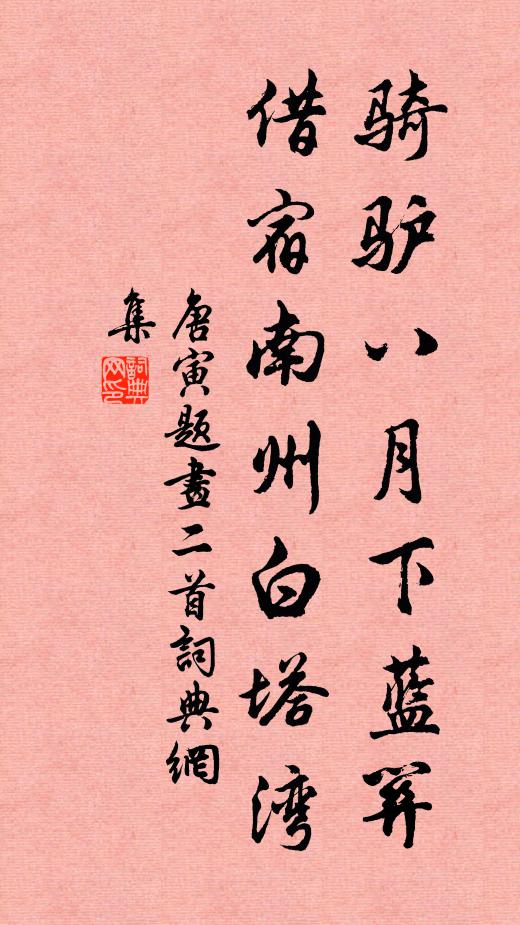 骑驴八月下蓝关
借宿南州白塔湾
唐寅题畫二首詞典網
集
詞典网印